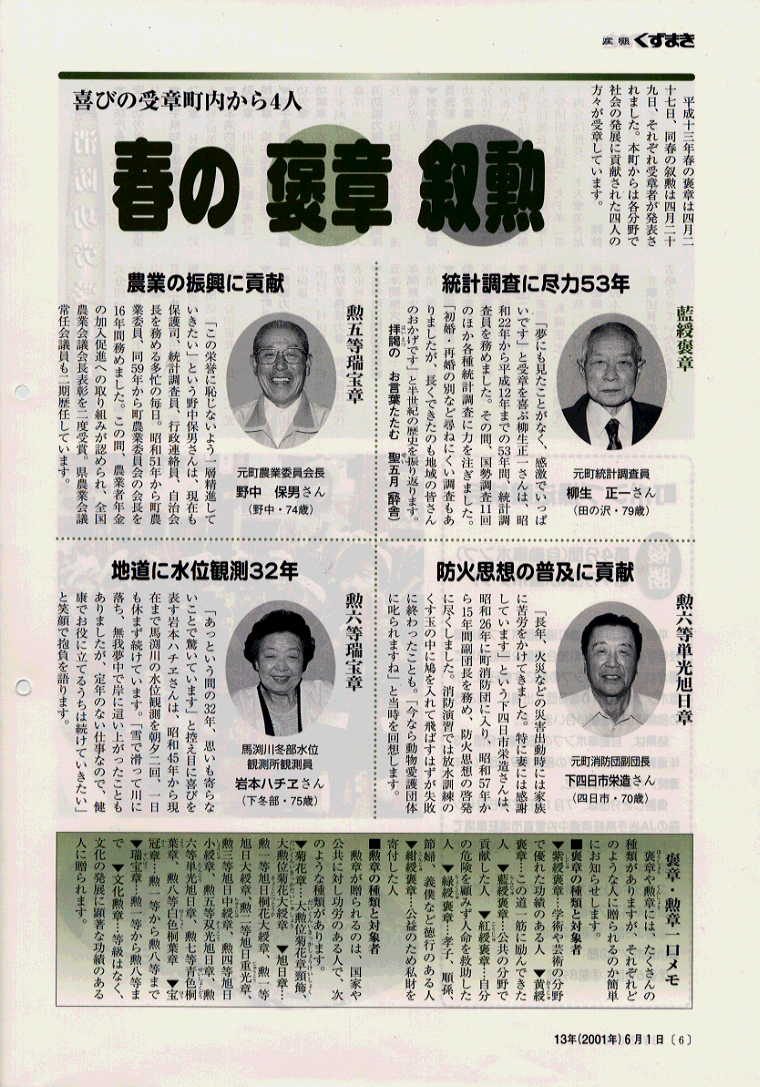 広報 くずまき
喜びの受章町内から4人
春の 褒章 叙勲
平成十三年春の褒章は四月二
十七日、同春の叙勲は四月二十
九日、それぞれ受章者が発表さ
れました。本町からは各分野で
社会の発展に貢献された四人の
方々が受章しています。
統計調査に尽力53年
藍綬褒章
元町統計調査員
柳生 正一さん
（田の沢・79歳）
「夢にも見たことがなく、感激でいっぱ
いです」と受章を喜ぶ柳生正一さんは、昭
和22年から平成12年までの53年間、統計調
査員を務めました。その間、国勢調査11回
のほか各種統計調査に力を注ぎました。
「初婚・再婚の別など尋ねにくい調査もあ
りましたが、長くできたのも地域の皆さん
のおかげです」と半世紀の歴史を振り返ります。
拝謁の お言葉たたむ 聖五月（酔舎）
農業の振興に貢献
勲五等瑞宝章
元町農業委員会長
野中 保男さん
（野中・74歳）
「この栄誉に恥じないよう一層精進して
いきたい」という野中保男さんは、現在も
保護司、統計調査員、行政連絡員、自治会
長を務める多忙の毎日。昭和51年から町農
業委員、同59年から町農業委員会の会長を
16年間務めました。この間、農業者年金
の加入促進への取り組みが認められ、全国
農業会議会長表彰を二度受賞。県農業会議
常任会議員も二期歴任しています。
防火思想の普及に貢献
勲六等単光旭日章
元町消防団副団長
下四日市栄造さん
（四日市・70歳）
「長年、火災などの災害出動時には家族
に苦労をかけてきました。特に妻には感謝
しています」という下四日市栄造さんは、
昭和26年に町消防団に入り、昭和57年か
ら15年間副団長を務め、防火思想の啓発
に尽くしました。消防演習では放水訓練の
くす玉の中に鳩を入れて飛ばすはずが失敗
に終わったことも。「今なら動物愛護団体
に叱られますね」と当時を回想します。
地道に水位観測32年
勲六等瑞宝章
馬渕川冬部水位
観測所観測員
岩本ハチヱさん
（下冬部・75歳）
「あっという間の32年、思いも寄らな
いことで驚いています」と控え目に喜びを
表す岩本ハチヱさんは、昭和45年から現
在まで馬渕川の水位観測を朝夕二回、一日
も休まず続けています。「雪で滑って川に
落ち、無我夢中で岸に這い上がったことも
ありましたが、定年のない仕事なので、健
康でお役に立てるうちは続けていきたい」
と笑顔で抱負を語ります。
褒章・勲章一口メモ
褒章や勲章には、たくさんの
種類がありますが、それぞれど
のような人に贈られるのか簡単
にお知らせします。
■褒章の種類と対象者
▼紫綬褒章…学術や芸術の分野
で優れた功績のある人 ▼黄綬
褒章…この道一筋に励んできた
人 ▼藍綬褒章…公共の分野で
貢献した人 ▼紅綬褒章…自分
の危険を顧みず人命を救助した
人 ▼緑綬褒章…孝子、順孫、
節婦、義僕など徳行のある人
▼紺綬褒章…公益のため私財を
寄付した人
■勲章の種類と対象者
勲章が贈られるのは、国家や
公共に対し功労のある人で、次
のような種類があります。
▼菊花章…大勲位菊花章頸飾、
大勲位菊花大綬章 ▼旭日章…
勲一等旭日桐花大綬章、勲一等
旭日大綬章、勲二等旭日重光章、
勲三等旭日中綬章、勲四等旭日
小綬章、勲五等双光旭日章、勲
六等単光旭日章、勲七等青色桐
葉章、勲八等白色桐葉章 ▼宝
冠章…勲一等から勲八等まで
▼瑞宝章…勲一等から勲八等ま
で ▼文化勲章…等級はなく、
文化の発展に顕著な功績のある
人に贈られます。
13年(2001年)6月1日〔6〕